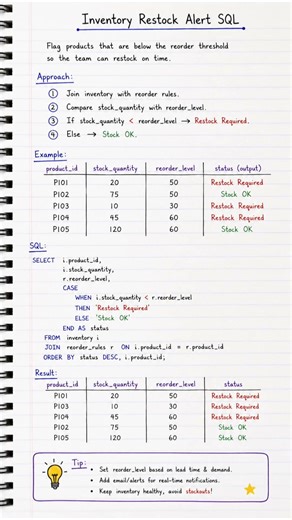 Inventory Restock Alert SQL
Flag products that are below the reorder threshold
so the team can restock on time.
Approach:
1 Join inventory with reorder rules.
2 Compare stock_quantity with reorder_level.
3 If stock_quantity < reorder_level → Restock Required.
4 Else → Stock OK.
Example:
product_id stock_quantity reorder_level status (output)
P101 20 50 Restock Required
P102 75 50 Stock OK
P103 10 30 Restock Required
P104 45 60 Restock Required
P105 120 60 Stock OK
SQL:
SELECT i.product_id,
i.stock_quantity,
r.reorder_level,
CASE
WHEN i.stock_quantity < r.reorder_level
THEN 'Restock Required'
ELSE 'Stock OK'
END AS status
FROM inventory i
JOIN reorder_rules r ON i.product_id = r.product_id
ORDER BY status DESC, i.product_id;
Result:
product_id stock_quantity reorder_level status
P101 20 50 Restock Required
P103 10 30 Restock Required
P104 45 60 Restock Required
P102 75 50 Stock OK
P105 120 60 Stock OK
Tip:
• Set reorder_level based on lead time & demand.
• Add email/alerts for real-time notifications.
• Keep inventory healthy, avoid stockouts!